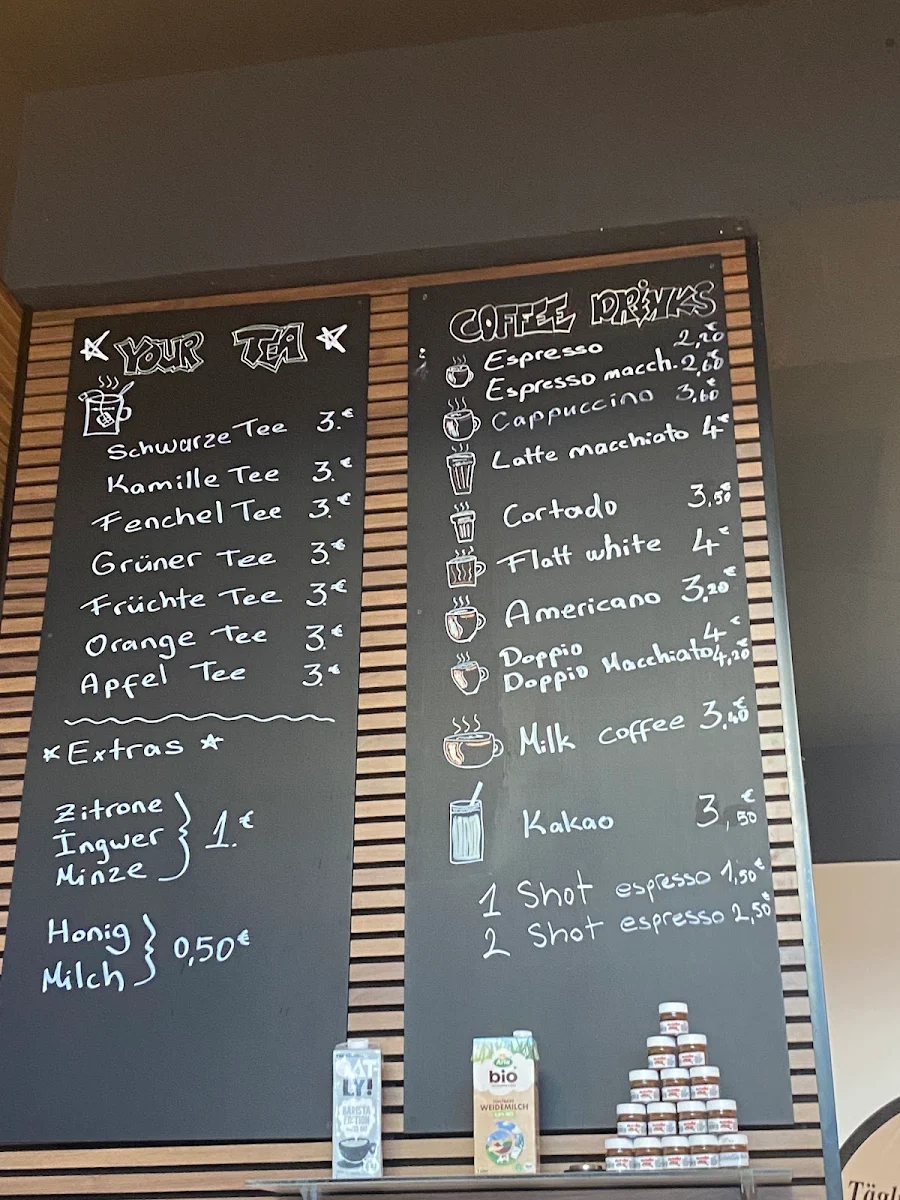 YOUR TEA
Schwarze Tee 3.€
Kamille Tee 3.€
Fenchel Tee 3.€
Grüner Tee 3.€
Früchte Tee 3.€
Orange Tee 3.€
Apfel Tee 3.€
Extras
Zitrone
İngwer 1.€
Minze
Honig
Milch 0,50€
COFFEE DRİNKS
Espresso 2,20€
Espresso macch. 2,60€
Cappuccino 3,60€
Latte macchiato 4€
Cortado 3,50€
Flatt white 4€
Americano 3,20€
Doppio 4€
Doppio Macchiato 4,20€
Milk coffee 3,40€
Kakao 3,50€
1 Shot espresso 1,50€
2 Shot espresso 2,50€
OATLY!
BARISTA
Arla
bio
WEIDEMILCH
Tägl